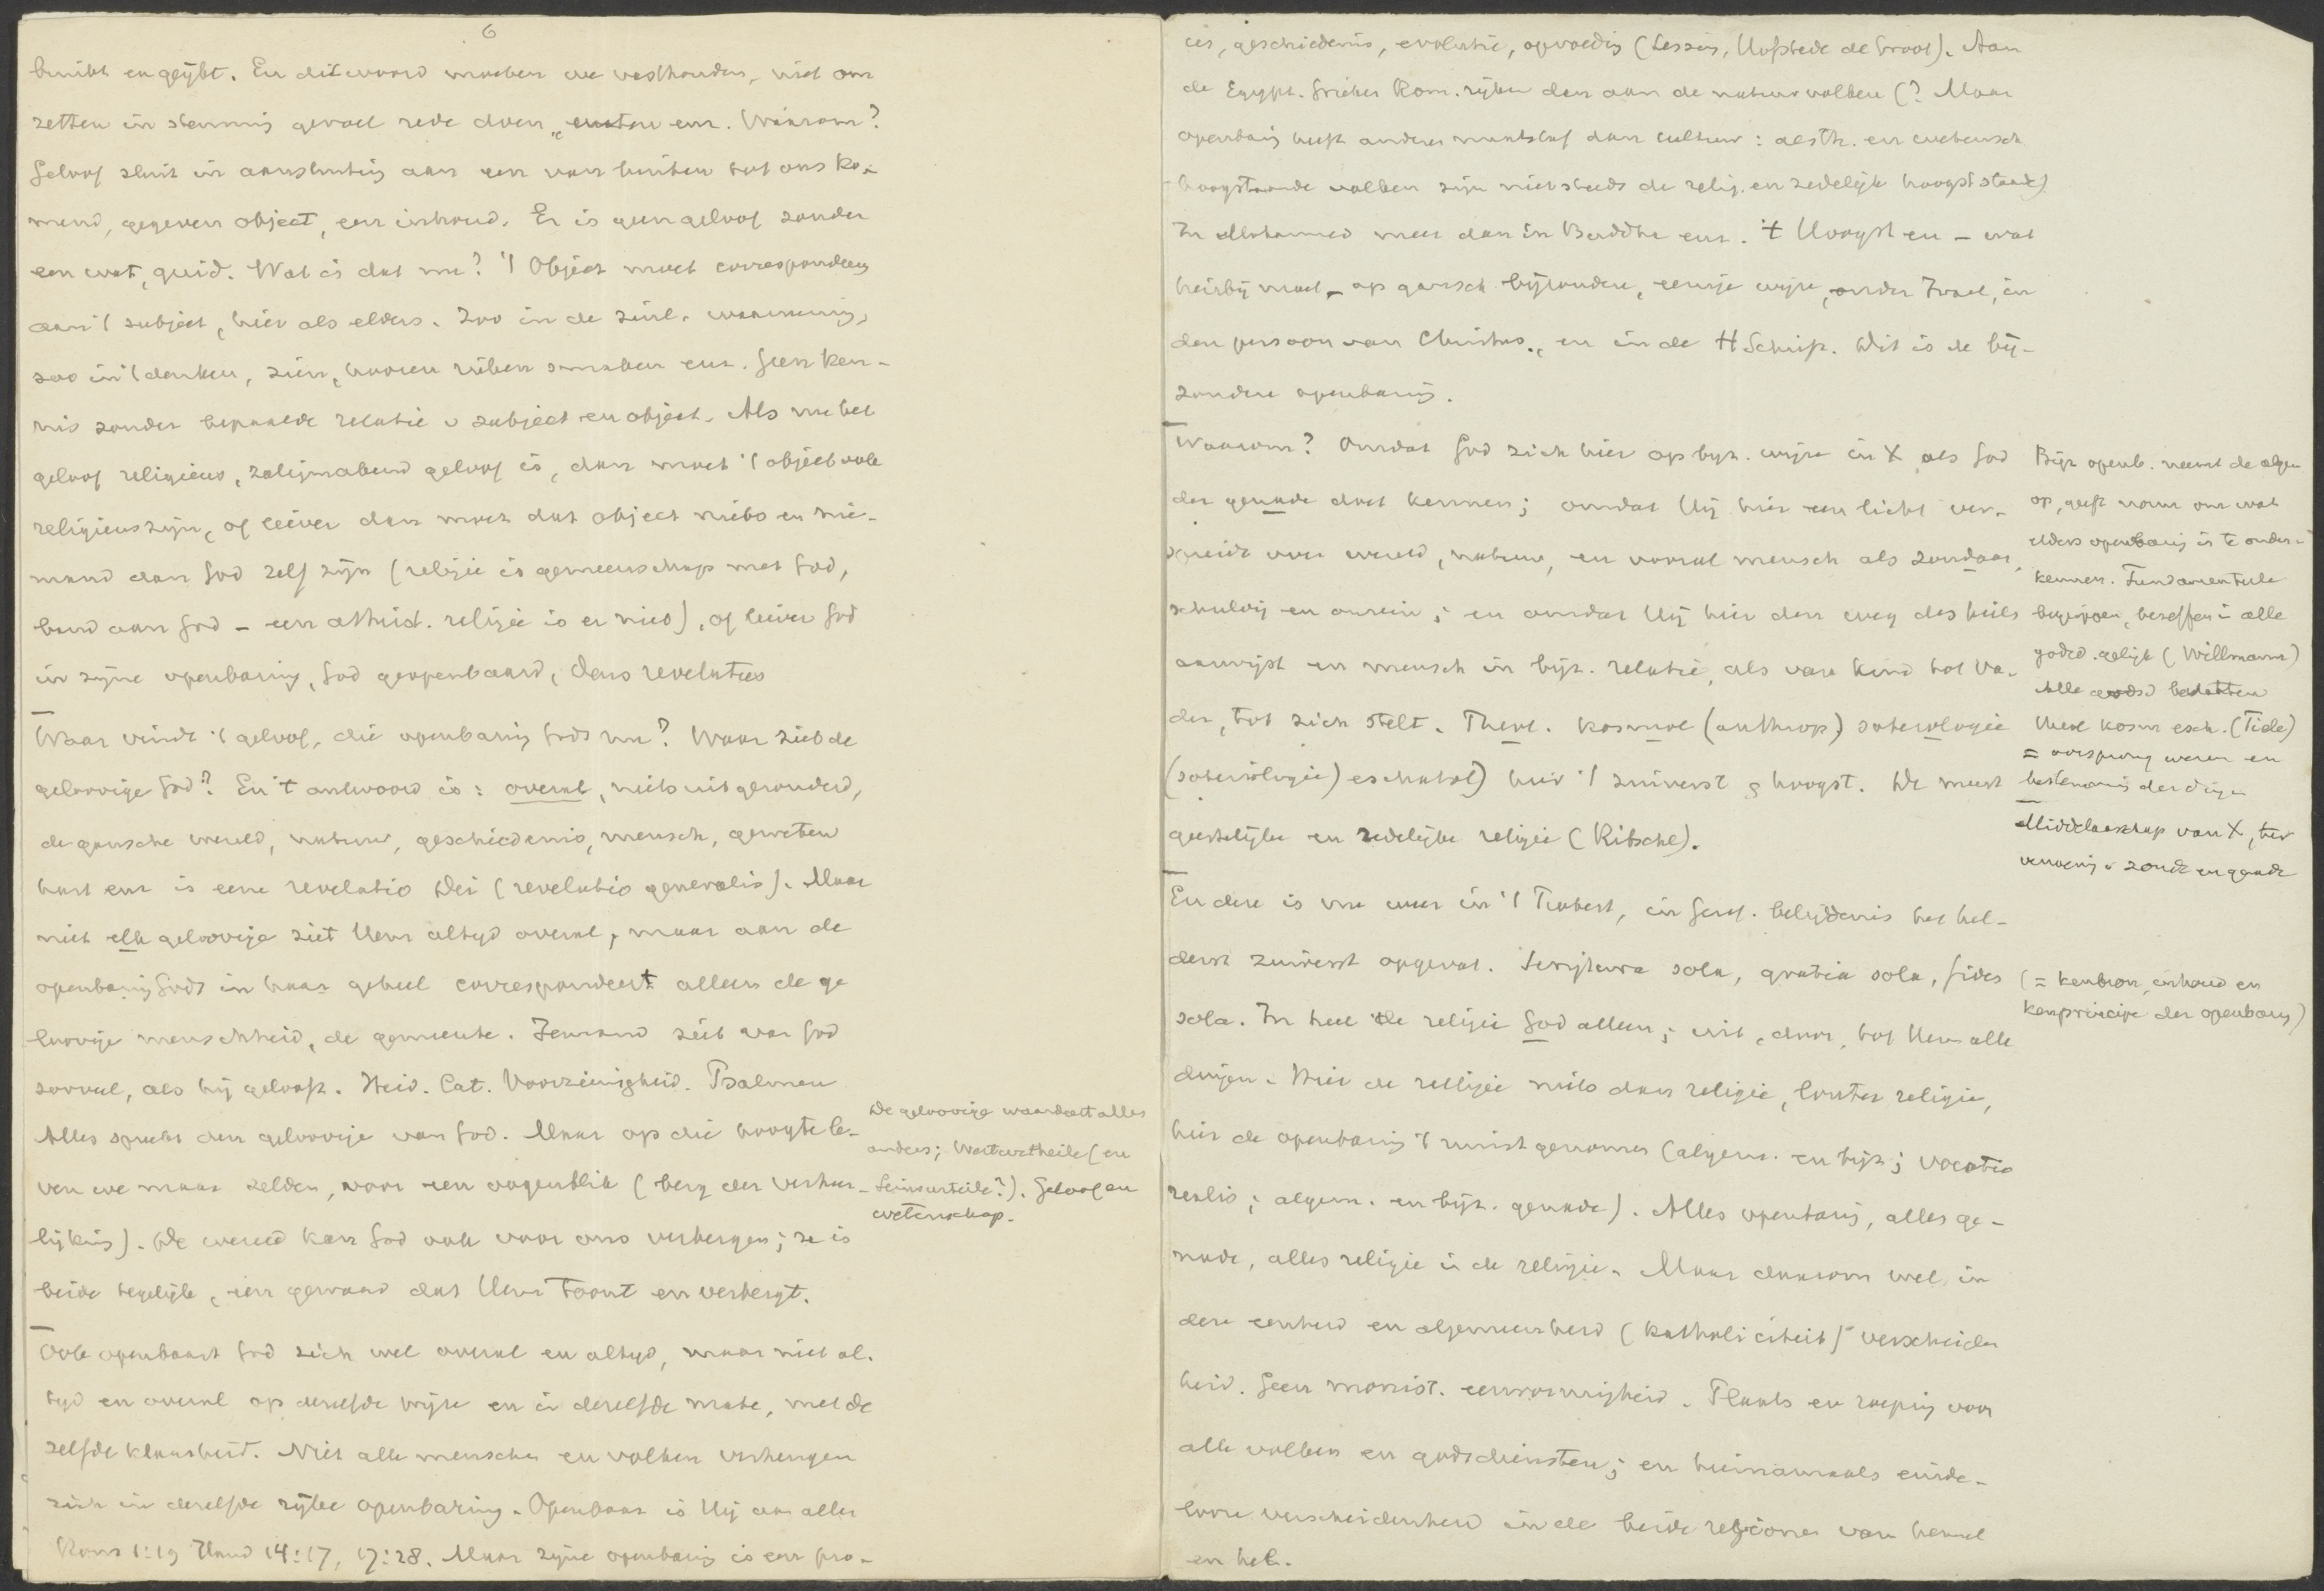 6
bruikt en geijkt. En dit woord moeten we vasthouden, niet om
zetten in stemming gevoel rede doen enz. Waarom?
Geloof sluit in aansluiting aan een van buiten tot ons ko-
mend, gegeven object, een inhoud. Er is geen geloof zonder
een wat, quid. Wat is dat nu? 't Object moet correspondeeren
aan 't subject, hier als elders. Zoo in de zinl. waarneming,
zoo in 't denken, zien, hooren ruiken smaken enz. Geen ken-
nis zonder bepaalde relatie v subject en object. Als nu het
geloof religieus, zaligmakend geloof is, dan moet 't object ook
religieus zijn, of liever dan moet dat object niets en nie-
mand dan God zelf zijn (religie is gemeenschap met God,
band aan God - een atheist. religie is er niet), of liever God
in zijne openbaring, God geopenbaard, Deus revelatus
Waar vindt 't geloof, die openbaring Gods nu? Waar ziet de
geloovige God? En 't antwoord is: overal, niets uitgezonderd,
de gansche wereld, natuur, geschiedenis, mensch, geweten
hart enz is eene revelatio Dei (revelatio generalis). Maar
niet elk geloovige ziet Hem altijd overal, maar aan de
openbaring Gods in haar geheel correspondeert alleen de ge
loovige menschheid, de gemeente. Iemand ziet van God
zooveel, als hij gelooft. Heid. Cat. Voorzienigheid. Psalmen
Alles spreekt den geloovige van God. Maar op die hoogte le-
ven we maar zelden, voor een oogenblik (berg der verheer-
lijking). De wereld kan God ook voor ons verbergen; ze is
beide tegelijk, een gewaad dat Hem toont en verbergt.
De geloovige waardeert alles
anders; Werturtheile (en
Seinsurteile?). Geloof en
wetenschap.
Ook openbaart God zich wel overal en altijd, maar niet al-
tijd en overal op dezelfde wijze en in dezelfde mate, met de
zelfde klaarheid. Niet alle menschen en volken verheugen
zich in dezelfde rijke openbaring. Openbaar is Hij aan allen
Rom 1:19 Hand 14:17, 17:28. Maar zijne openbaring is een pro-
ces, geschiedenis, evolutie, opvoeding (Lessing, Hofstede de Groot). Aan
de Egypt. Grieken Rom. rijker dan aan de natuurvolken (? Maar
openbaring heeft anderen maatstaf dan cultuur: aesth. en wetensch.
hoogstaande volken zijn niet steeds de relig. en zedelijk hoogst staande)
In Mohammed meer dan in Buddha enz. 't Hoogst en - wat
hierbij moet - op gansch bijzondere, eenige wijze, onder Israel, in
den persoon van Christus, en in de H Schrift. Dit is de bij-
zondere openbaring.
Waarom? Omdat God zich hier op byz. wijze in X als God
der genade doet kennen; omdat Hij hier een licht ver-
spreidt over wereld, natuur, en vooral mensch als zondaar,
schuldig en onrein; en omdat Hij hier den weg des heils
aanwijst en mensch in bijz. relatie, als van kind tot Va-
der, tot zich stelt. Theol. kosmol (anthrop) soterologie
(soteriologie) eschatol) hier 't zuiverst & hoogst. De meest
geestelijke en zedelijke religie (Ritschl).
Bijz openb. neemt de algem
op, geeft norm om wat
elders openbaring is te onder-
kennen. Fundamenteele
begrippen, beseffen in alle
godsd. gelijk (Willmann)
Alle godsd bevatten
theol kosm esch. (Tiele)
= oorsprong wezen en
bestemming der dingen
Middelaarschap van X, ter
verzoening v zonde en genade
En deze is nu weer in 't Protest, in Geref. belijdenis het hel-
derst zuiverst opgevat. Scriptura sola, gratia sola, fides
sola. In heel de religie God alleen; uit, door, tot Hem alle
dingen. Hier de religie niets dan religie, louter religie,
hier de openbaring 't ruimst genomen (algem. en bijz; vocatio
realis; algem. en bijz. genade). Alles openbaring, alles ge-
nade, alles religie in de religie. Maar daarom wel in
deze eenheid en algemeenheid (katholiciteit) verscheiden
heid. Geen monist. eenvormigheid. Plaats en roeping voor
alle volken en godsdiensten; en hiernamaals einde-
looze verscheidenheid in de beide regionen van hemel
en hel.
(= kenbron, inhoud en
kenprincipe der openbaring)